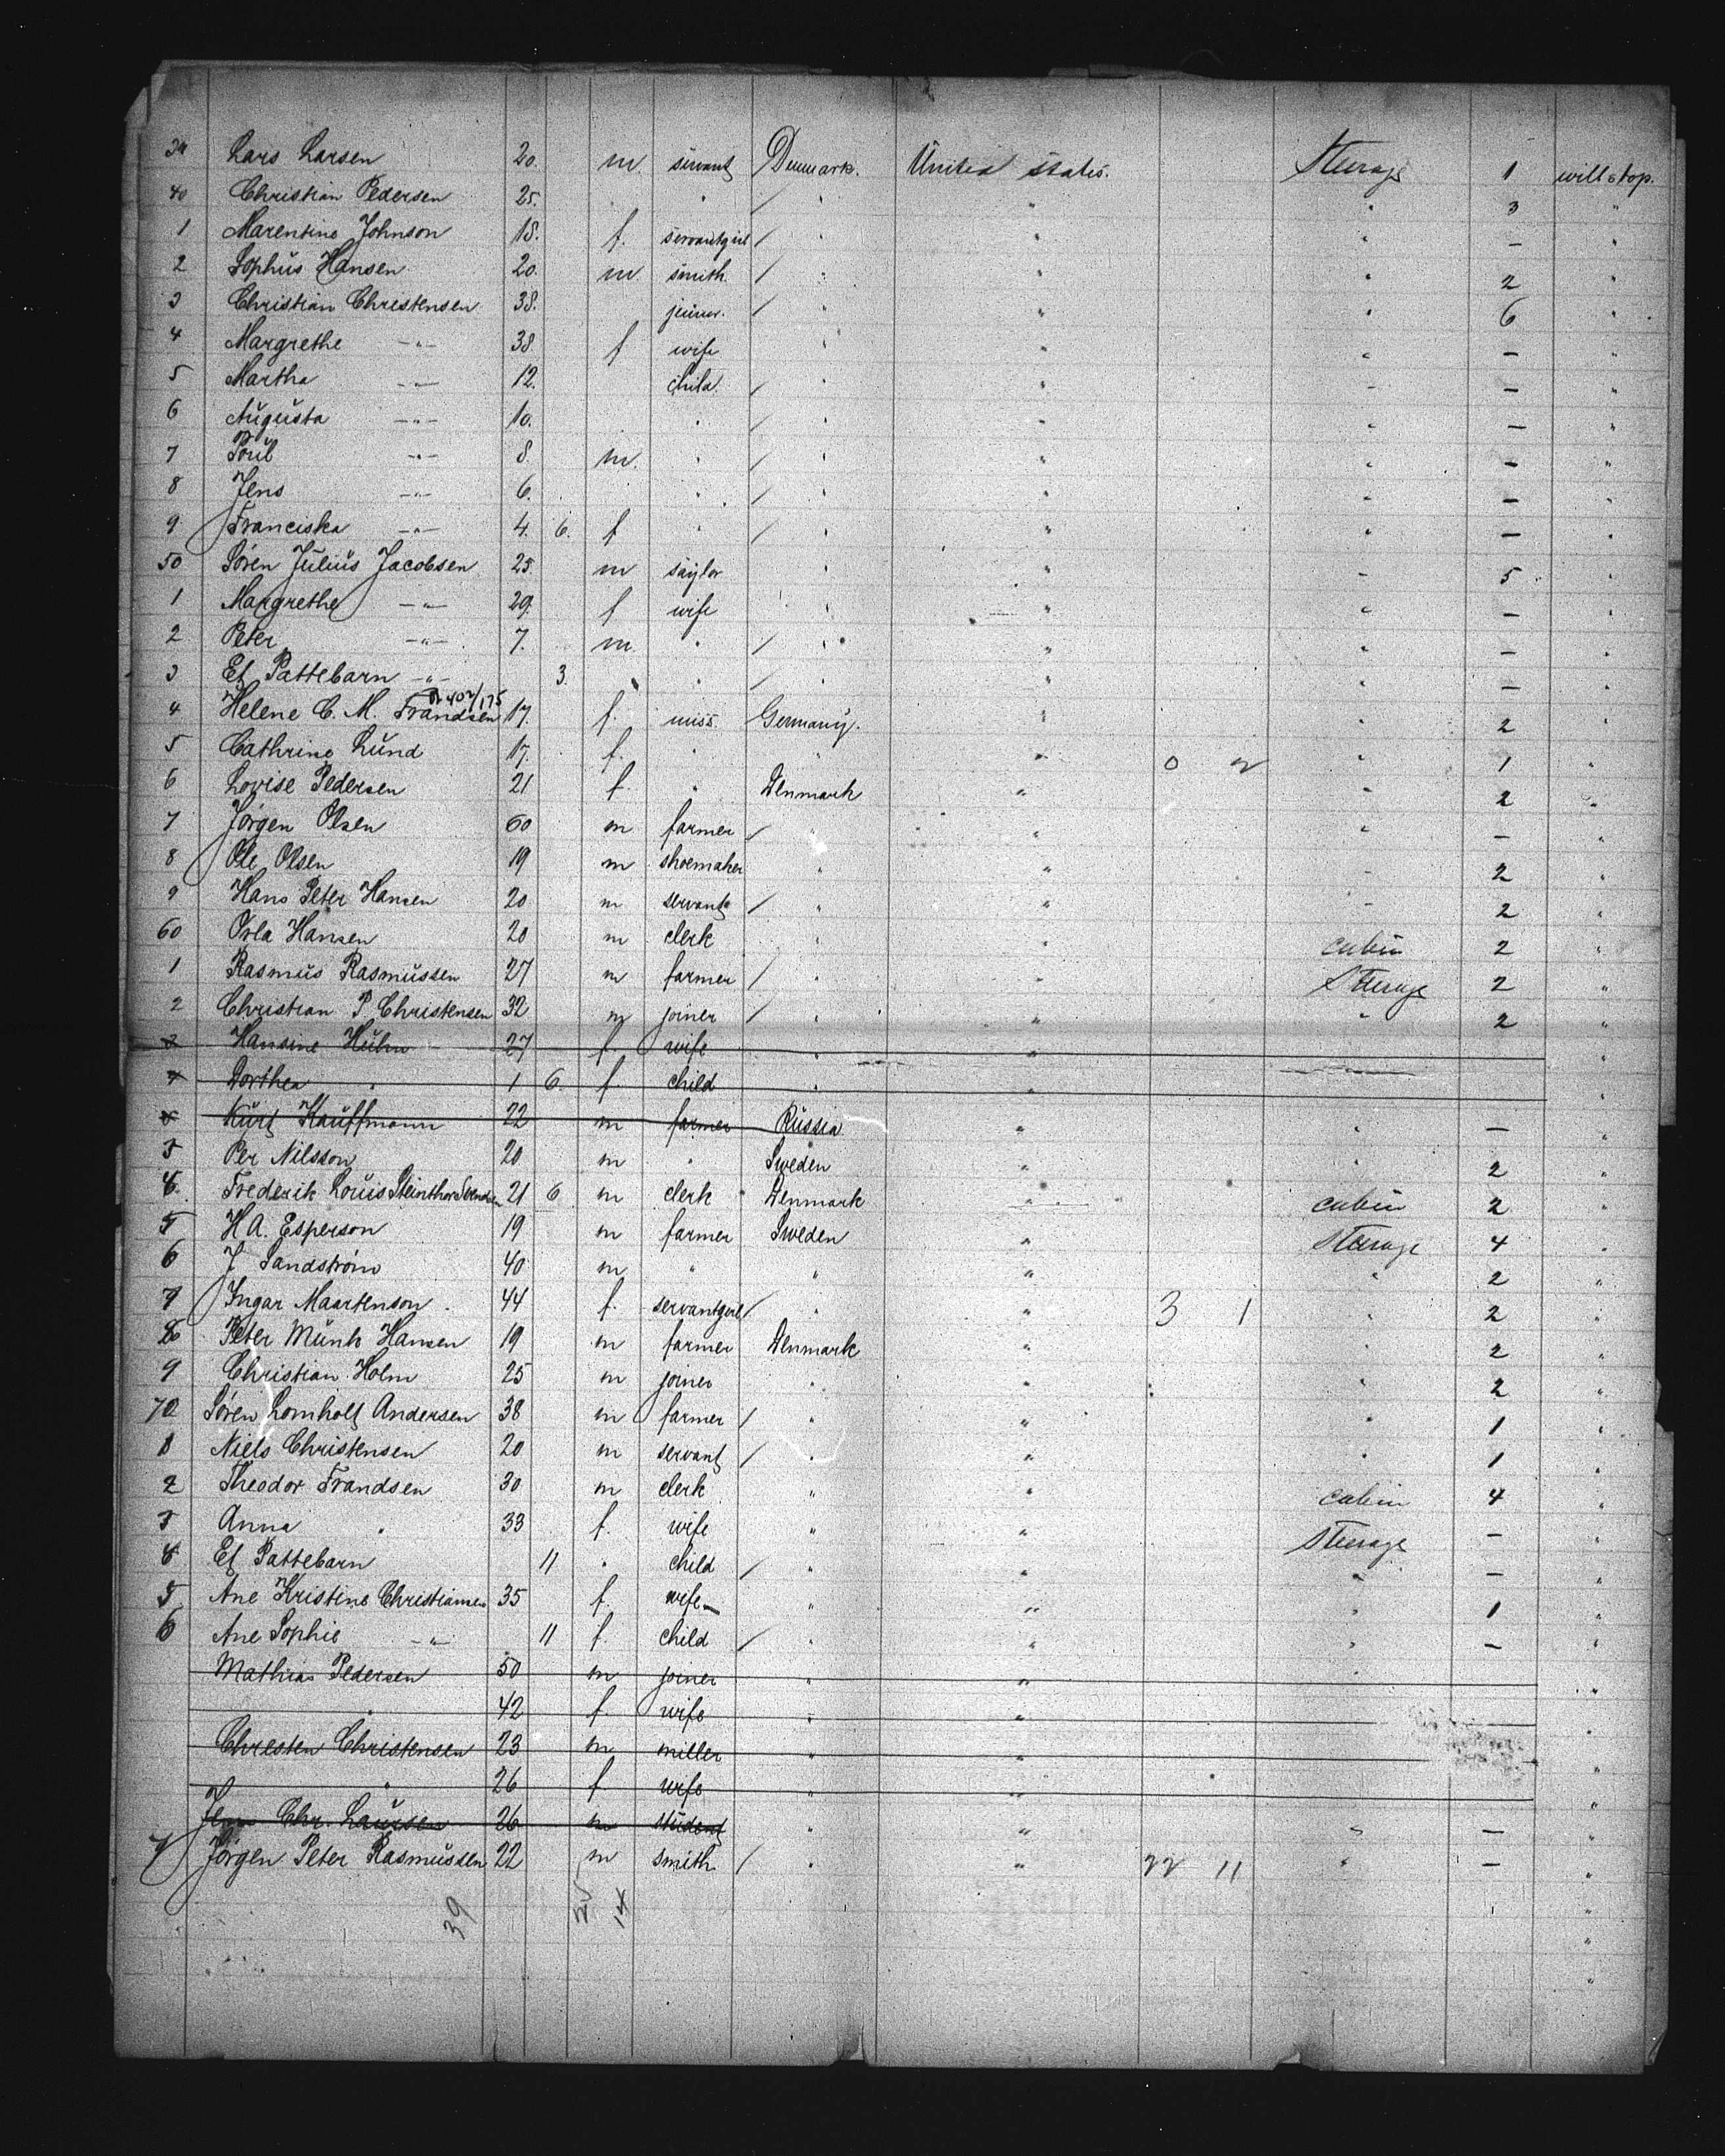 Lars Larsen 20. m. servant Denmark. United States. Steerage 1 will stop.
40 Christian Pedersen 25. " / " " " 3 "
1 Marentine Johnson 18. f. servantgirl / " " " — "
2 Sophus Hansen 20. m. smith. / " " " 2 "
3 Christian Christensen 38. / " " " 6 "
4 Margrethe —"— 38 f wife " " " — "
5 Martha —"— 12. child. / " " " — "
6 Augusta —"— 10. " / " " " — "
7 Poul —"— 8. m. " / " " " — "
8 Jens —"— 6. " / " " " — "
9 Franciska —"— 4. 6. f " / " " " — "
50 Sören Julius Jacobsen 25. m saylor " " " 5 "
1 Margrethe —"— 29. f wife " " " — "
2 Peter —"— 7. m. " / " " " — "
3 Et Pattebarn —"— 3. " " / " " " — "
4 Helene C. M. Frandsen 17. f. miss Germany. " " 2 "
5 Cathrine Lund 17. f. " " " 0 2 " 1 "
6 Lovise Pedersen 21 f. " Denmark " " 2 "
7 Jörgen Olsen 60 m farmer / " " " — "
8 Ole Olsen 19 m shoemaker " " " 2 "
9 Hans Peter Hansen 20 m servant / " " " 2 "
60 Orla Hansen 20 m clerk " " cabin 2 "
1 Rasmus Rasmussen 27 m farmer / " " Steerage 2 "
2 Christian P. Christensen 32 m joiner / " " " 2 "
Hansine 27 f. wife " " "
Dorthea " 1 6. f. child " " "
Kurt Kauffmann 22 m farmer Russia " " — "
Per Nilsson 20 m " Sweden " " 2 "
Frederik Louis 21 6 m clerk Denmark " cabin 2 "
5 H A. Esperson 19 m farmer Sweden " Steerage 4 "
6 J. Sandström 40 m " " " " 2 "
7 Ingar Maartenson 44 f. servantgirl / " " 3 1 " 2 "
8 Peter Munk Hansen 19 m farmer Denmark " " 2 "
9 Christian Holm 25 m joiner " " " 2 "
70 Sören Lomholt Andersen 38 m farmer / " " " 1 "
1 Niels Christensen 20 m servant / " " " 1 "
2 Theodor Frandsen 30 m clerk " " cabin 4 "
3 Anna " 33 f. wife " " Steerage — "
Et Pattebarn 11 " child / " " " — "
5 Ane Kristine Christiansen 35 f. wife " " " 1 "
6 Ane Sophie —"— 11 f. child / " " " — "
Mathias Pedersen 50 m joiner " " " "
" 42 f. wife " " "
Chresten Christensen 23 m miller " " "
" 26 f. wife " " "
Jens Chr. Laursen 26 m student " " " — "
7 Jörgen Peter Rasmussen 22 m smith / " " 22 11 " — "
39 25 14